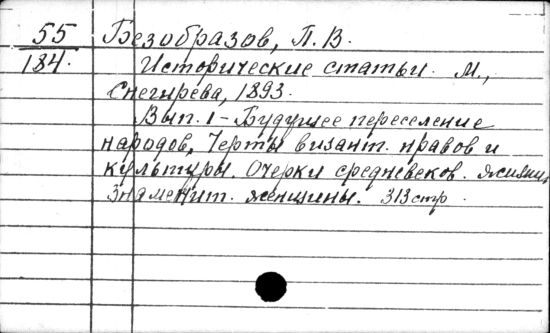 55 Безобразов, П. В.
184. Исторические статьи. М.,
Снегирева, 1893.
Вып. 1 - Будущее переселение
народов, Черты визант. нравов и
культуры. Очерки средневеков. жизни,
Знаменит. женщины. 313 стр.